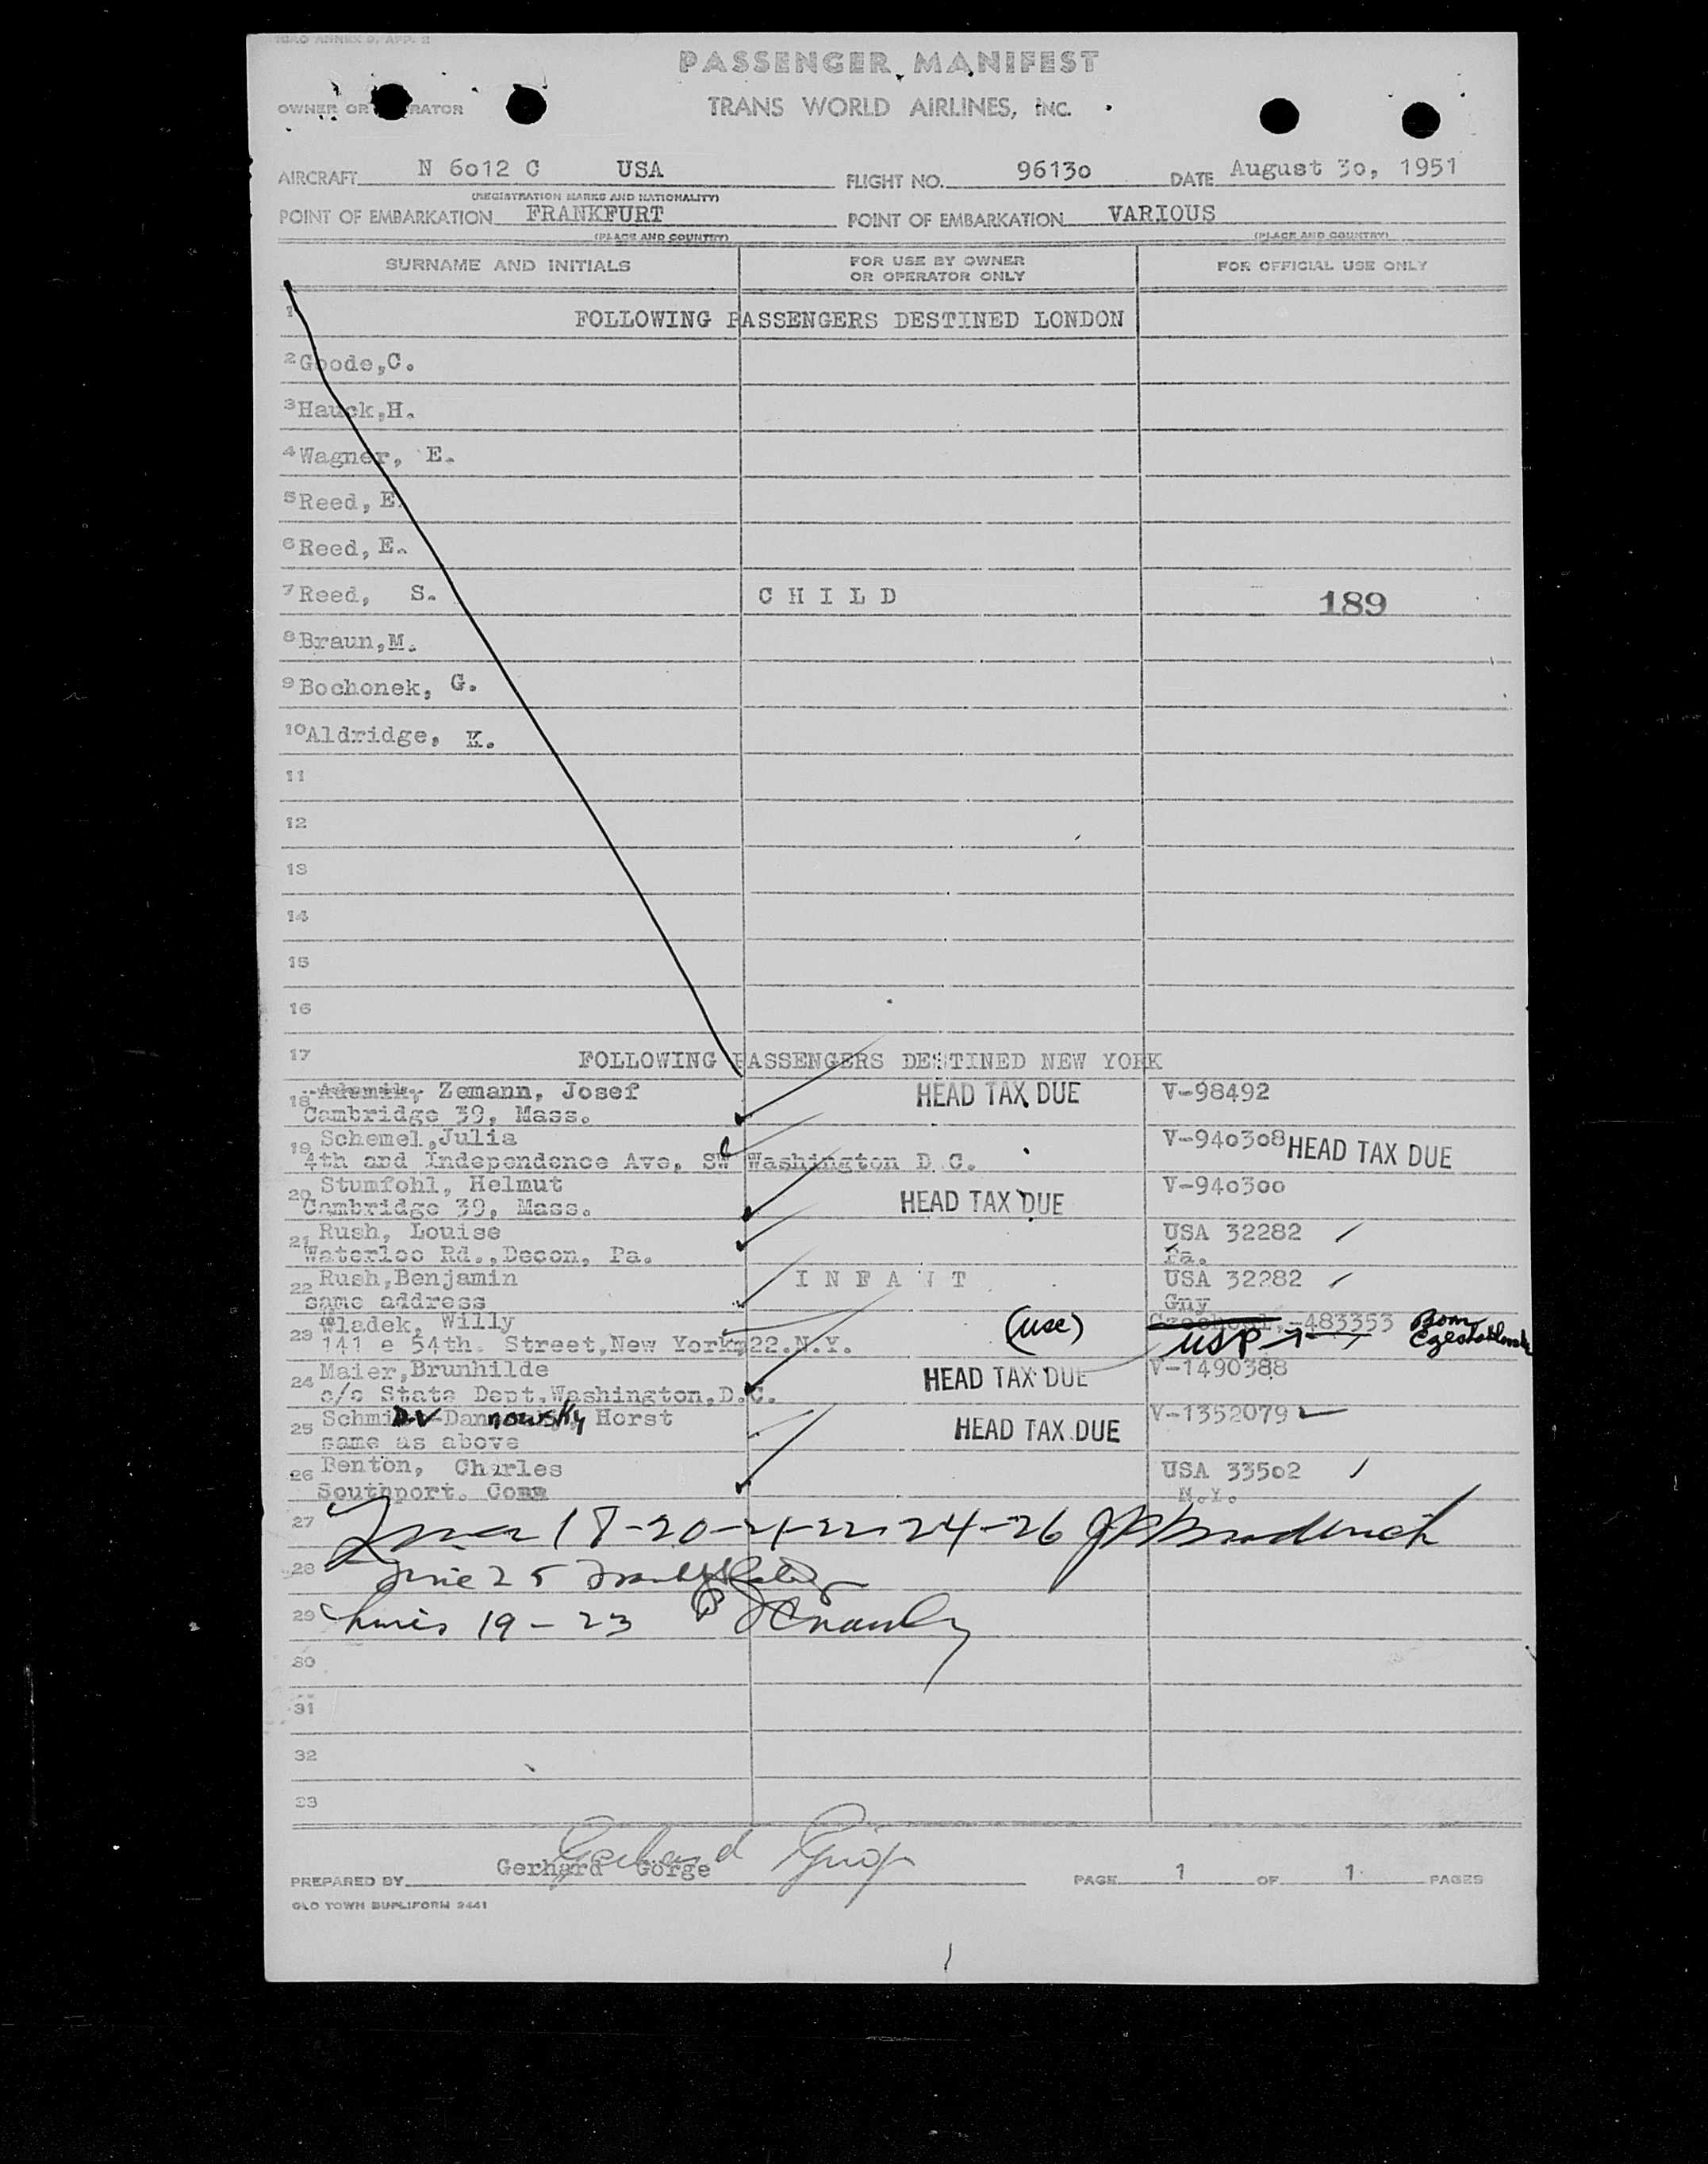 ICAO ANNEX 9, APP. 2
PASSENGER MANIFEST
OWNER OR OPERATOR
TRANS WORLD AIRLINES, INC.
AIRCRAFT N 6012 C USA FLIGHT NO. 96130 DATE August 30, 1951
(REGISTRATION MARKS AND NATIONALITY)
POINT OF EMBARKATION FRANKFURT POINT OF EMBARKATION VARIOUS
(PLACE AND COUNTRY) (PLACE AND COUNTRY)
SURNAME AND INITIALS FOR USE BY OWNER OR OPERATOR ONLY FOR OFFICIAL USE ONLY
1 FOLLOWING PASSENGERS DESTINED LONDON
2 Goode,C.
3 Hauck,H.
4 Wagner, E.
5 Reed, E.
6 Reed, E.
7 Reed, S. C H I L D 189
8 Braun,M.
9 Bochonek, G.
10 Aldridge, K.
11
12
13
14
15
16
17 FOLLOWING PASSENGERS DESTINED NEW YORK
18 Zemann, Josef HEAD TAX DUE V-98492
Cambridge 39, Mass.
19 Schemel,Julia V-940308 HEAD TAX DUE
4th and Independence Ave. SW Washington D.C.
20 Stumfohl, Helmut V-940300
Cambridge 39, Mass. HEAD TAX DUE
21 Rush, Louise USA 32282
Waterloo Rd.,Decon, Pa. Pa.
22 Rush,Benjamin I N F A N T USA 32282
same address Gny
23 Wladek, Willy (usc) 483353 Born
141 e 54th. Street,New York,22.N.Y. USP
24 Maier,Brunhilde HEAD TAX DUE V-1490388
c/o State Dept,Washington,D.C.
25 Horst HEAD TAX DUE V-1352079
same as above
26 Benton, Charles USA 33502
Southport. Conn N.Y.
27 18-20-21-22-24-26
28 Line 25
29 Lines 19-23
30
31
32
33
PREPARED BY Gerhard Görge PAGE 1 OF 1 PAGES
OLD TOWN DUPLIFORM 2441